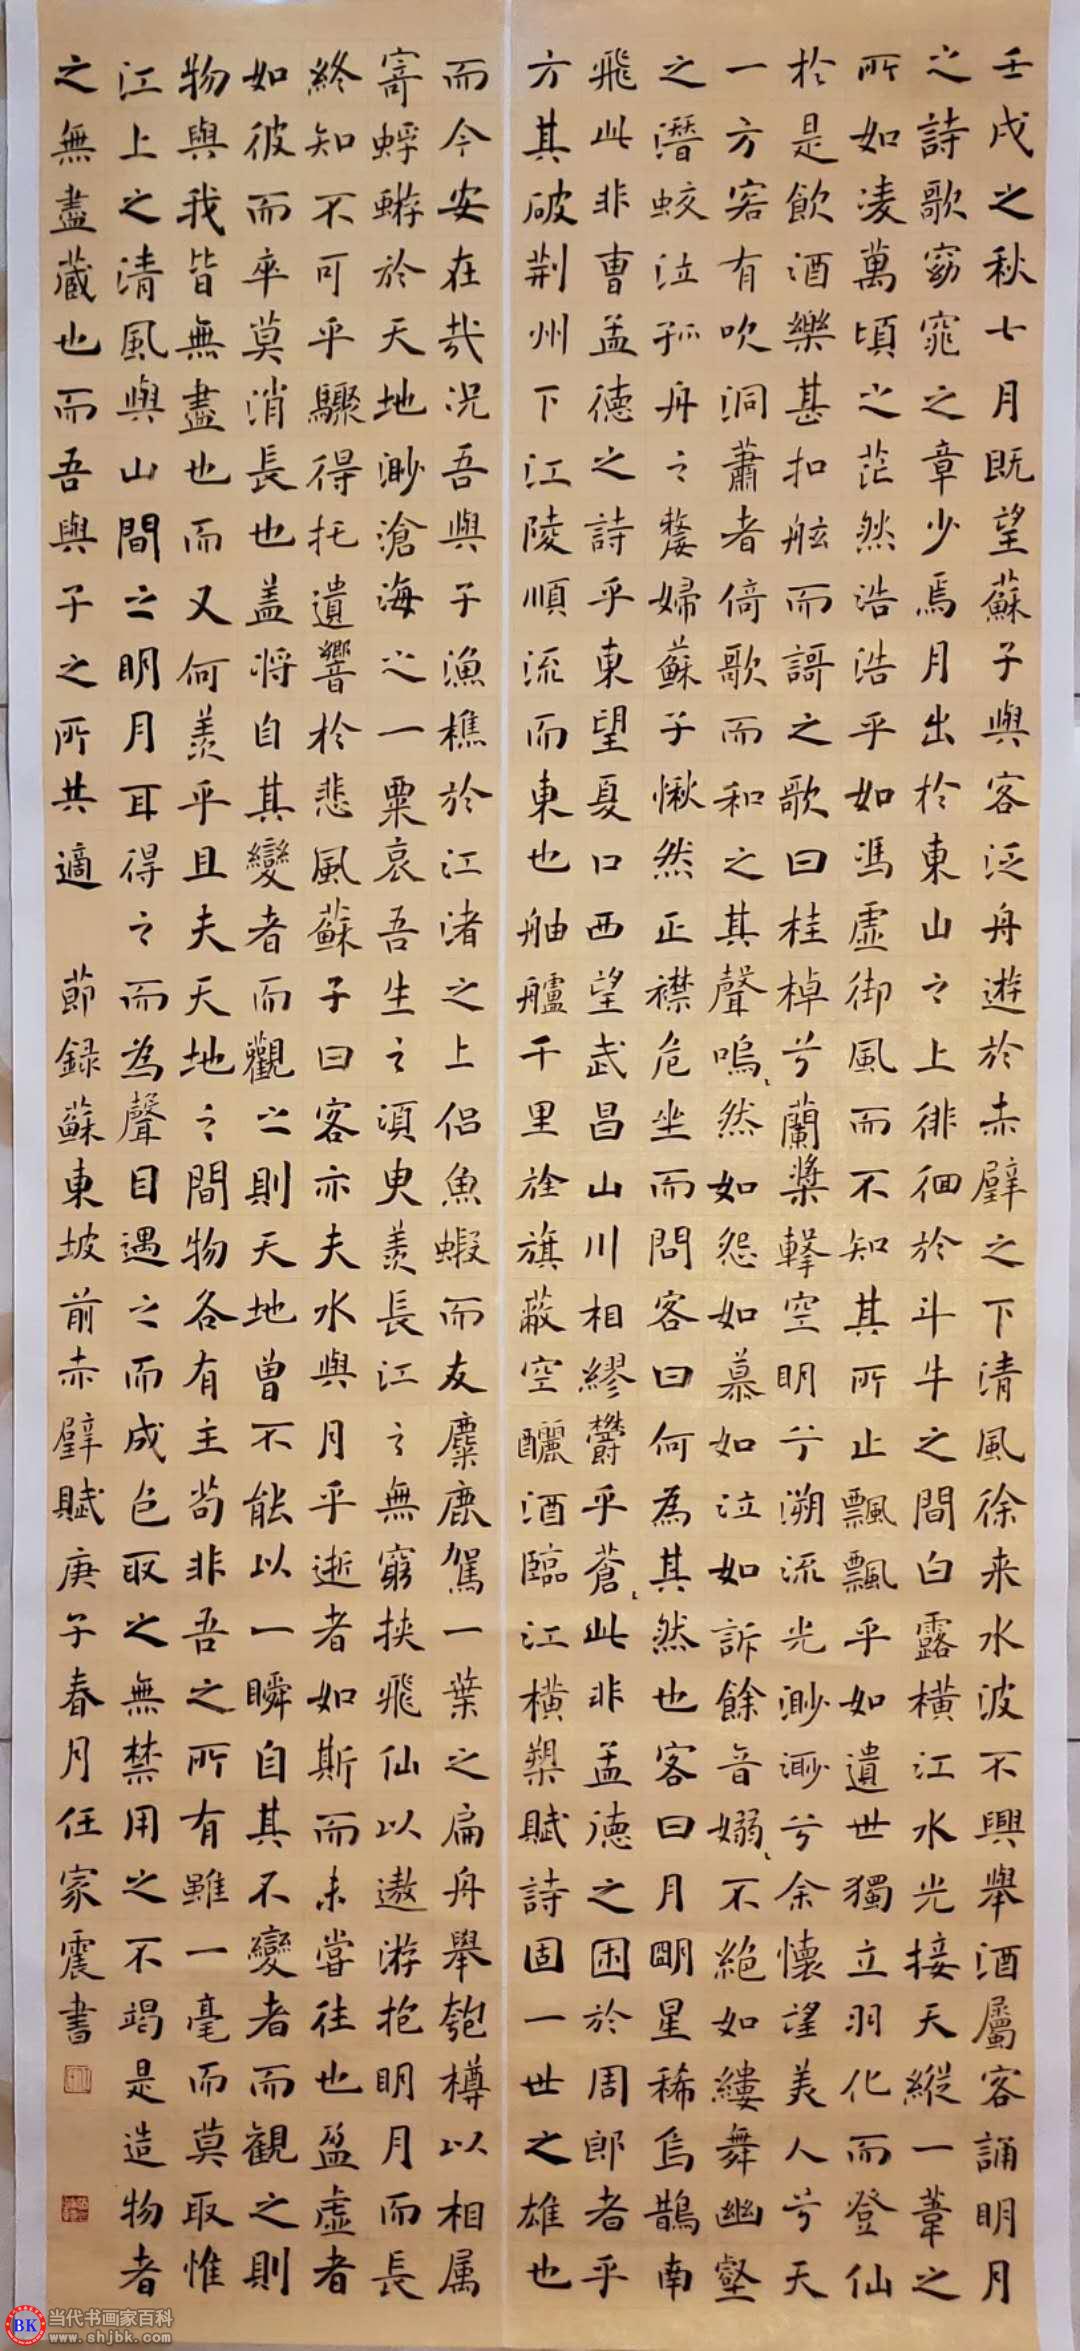 壬戌之秋七月既望蘇子與客泛舟遊於赤壁之下清風徐来水波不興舉酒屬客誦明月
之詩歌窈窕之章少焉月出於東山之上徘徊於斗牛之間白露橫江水光接天縱一葦之
所如凌萬頃之茫然浩浩乎如馮虛御風而不知其所止飄飄乎如遺世獨立羽化而登仙
於是飲酒樂甚扣舷而謌之歌曰桂棹兮蘭槳擊空明兮溯流光渺渺兮余懷望美人兮天
一方客有吹洞蕭者倚歌而和之其聲嗚、然如怨如慕如泣如訴餘音嫋、不絕如縷舞幽壑
之潛蛟泣孤舟之嫠婦蘇子愀然正襟危坐而問客曰何為其然也客曰月明星稀烏鵲南
飛此非曹孟德之詩乎東望夏口西望武昌山川相繆鬱乎蒼、此非孟德之困於周郎者乎
方其破荆州下江陵順流而東也舳艫千里旌旗蔽空釃酒臨江橫槊賦詩固一世之雄也
而今安在哉況吾與子漁樵於江渚之上侣魚蝦而友麋鹿駕一葉之扁舟舉匏樽以相属
寄蜉蝣於天地渺滄海之一粟哀吾生之須臾羨長江之無窮挾飛仙以遨游抱明月而長
終知不可乎驟得托遺響於悲風蘇子曰客亦夫水與月乎逝者如斯而未嘗往也盈虛者
如彼而卒莫消長也盖将自其變者而觀之則天地曾不能以一瞬自其不變者而観之則
物與我皆無盡也而又何羨乎且夫天地之間物各有主苟非吾之所有雖一毫而莫取惟
江上之清風與山間之明月耳得之而為聲目遇之而成色取之無禁用之不竭是造物者
之無盡藏也而吾與子之所共適 節録蘇東坡前赤壁賦庚子春月任家震書
BK 当代书画家百科
www.shjbk.com